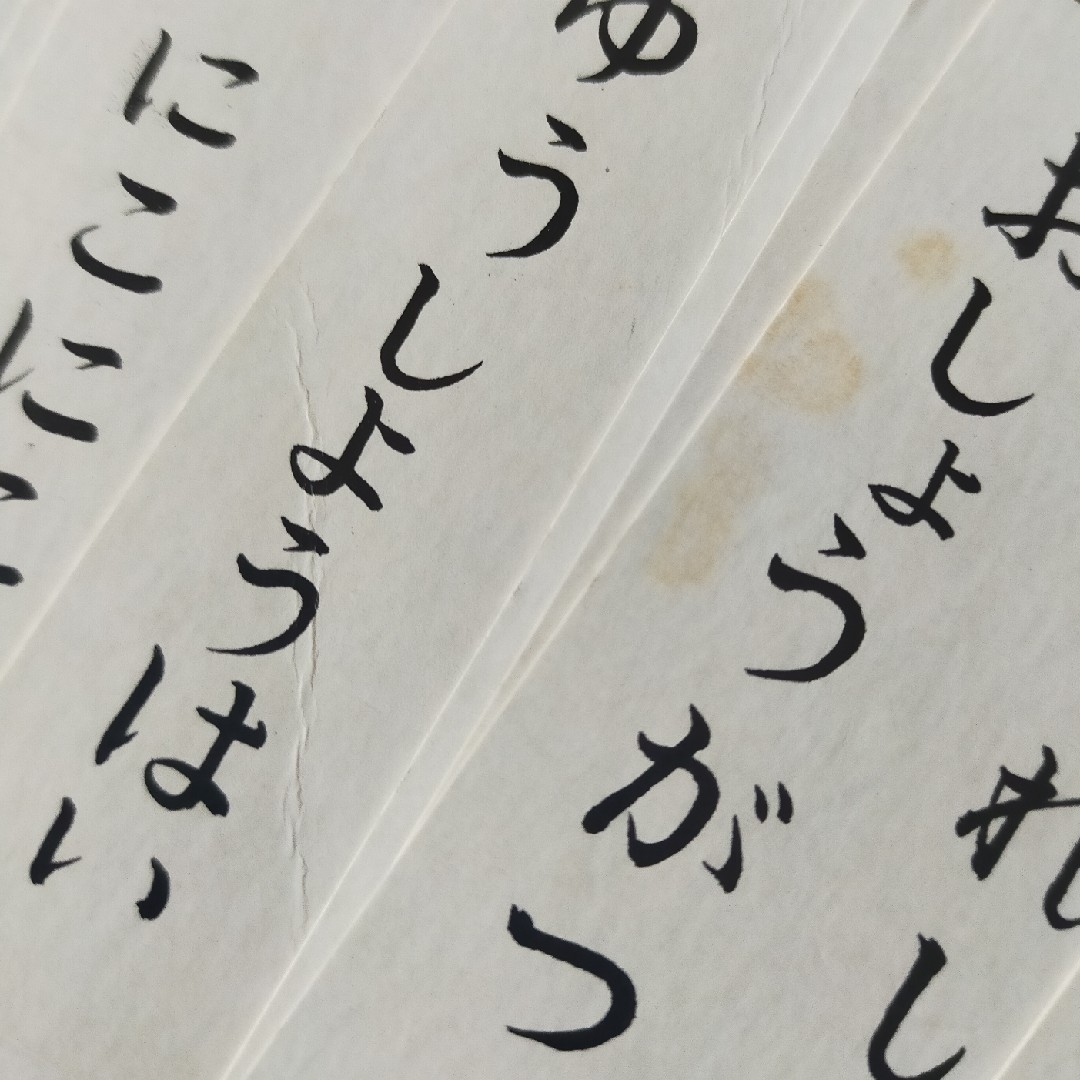 れし
おしょうがつ
ゆうしょうはい
にこにこ